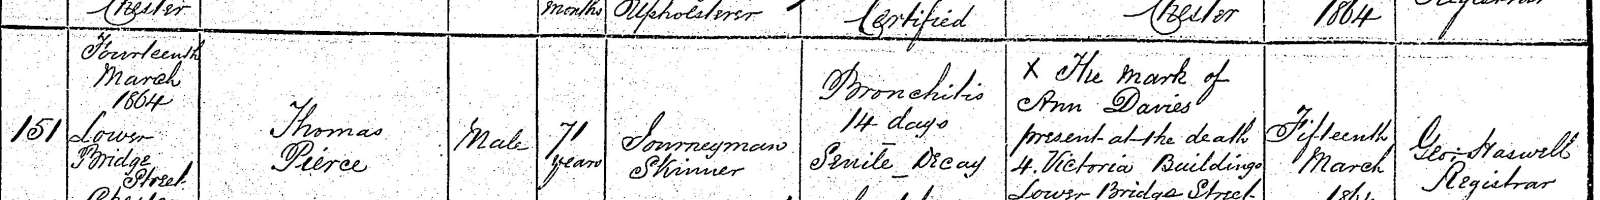 Chester
months
Upholsterer
Certified
Chester
1864
Registrar
151
Fourteenth
March
1864
Lower
Bridge
Street
Chester
Thomas
Pierce
Male
71
years
Journeyman
Skinner
Bronchitis
14 days
Senile Decay
X The mark of
Ann Davies
present at the death
4. Victoria Buildings
Lower Bridge Street
Fifteenth
March
1864
Geo: Haswell
Registrar